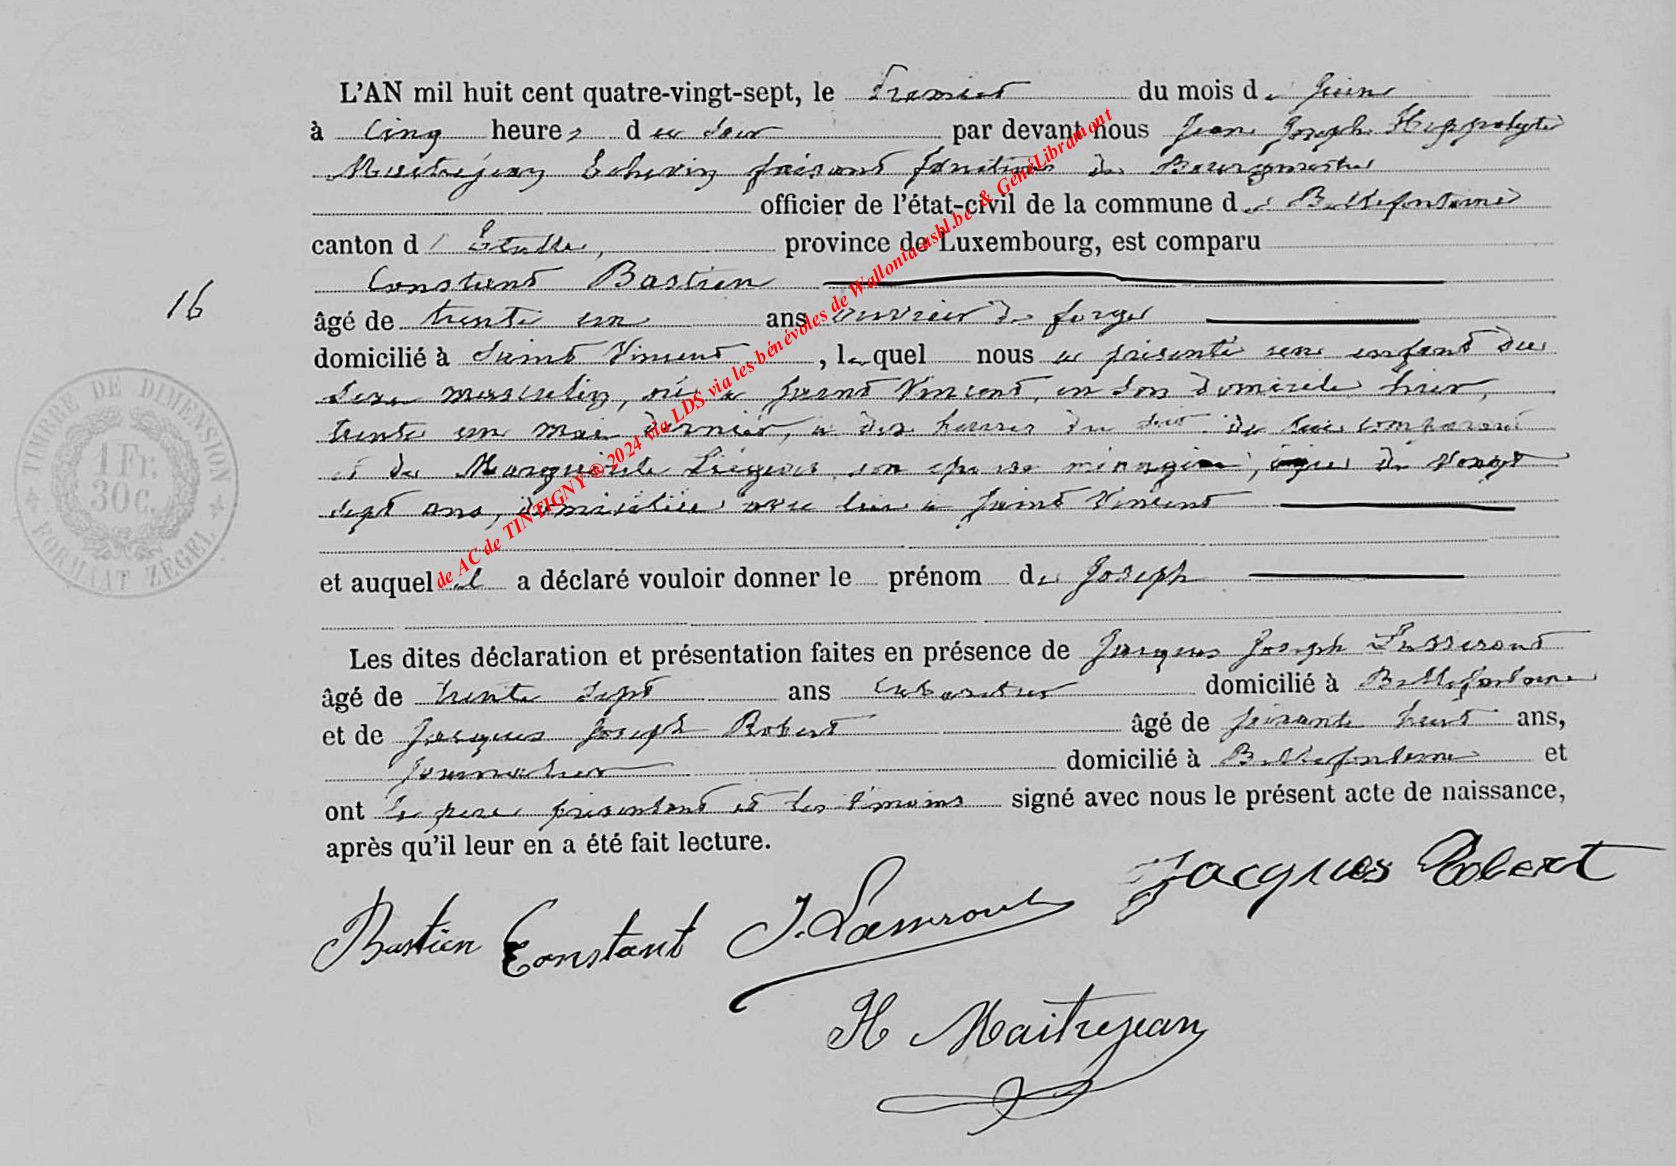 L'AN mil huit cent quatre-vingt-sept, le Premier du mois de Juin
à Cinq heures du soir par devant nous Jean Joseph Hippolyte
Maitrejean Echevin faisant fonctions de Bourgmestre
officier de l'état-civil de la commune de Bellefontaine
canton d'Etalle, province de Luxembourg, est comparu
Constant Bastien
16
âgé de trente un ans ouvrier de forge
domicilié à Saint Vincent, lequel nous a présenté un enfant du
sexe masculin, né à Saint Vincent, en son domicile hier,
trente un mai dernier, à dix heures du soir de lui comparant
et de Marguerite Liégeois son épouse ménagère, âgée de vingt
sept ans, domiciliée avec lui à Saint Vincent
et auquel il a déclaré vouloir donner le prénom de Joseph
Les dites déclaration et présentation faites en présence de Jacques Joseph
âgé de trente sept ans cabaretier domicilié à Bellefontaine
et de Jacques Joseph Robert âgé de soixante huit ans,
Journalier domicilié à Bellefontaine et
ont le père présentant et les témoins signé avec nous le présent acte de naissance,
après qu'il leur en a été fait lecture.
Bastien Constant J. Jacques Robert
H Maitrejean
TIMBRE DE DIMENSION
1 Fr.
30 c.
FORMAAT ZEGEL
de AC de TINTIGNY ® 2024 via LDS via les bénévoles de Wallonia asbl.be & GénéLibramont